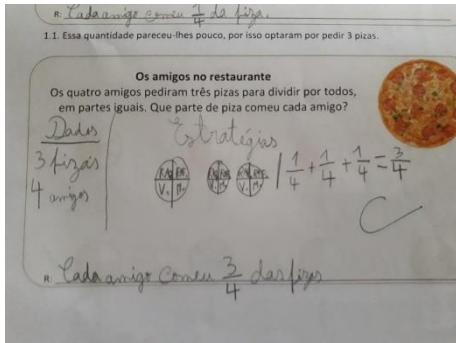 R: Cada amigo comeu 1/4 da piza.
1.1. Essa quantidade pareceu-lhes pouco, por isso optaram por pedir 3 pizas.
Os amigos no restaurante
Os quatro amigos pediram três pizas para dividir por todos,
em partes iguais. Que parte de piza comeu cada amigo?
Dados
3 pizas
4 amigos
Estratégias
1/4 + 1/4 + 1/4 = 3/4
C
R: Cada amigo comeu 3/4 das pizas